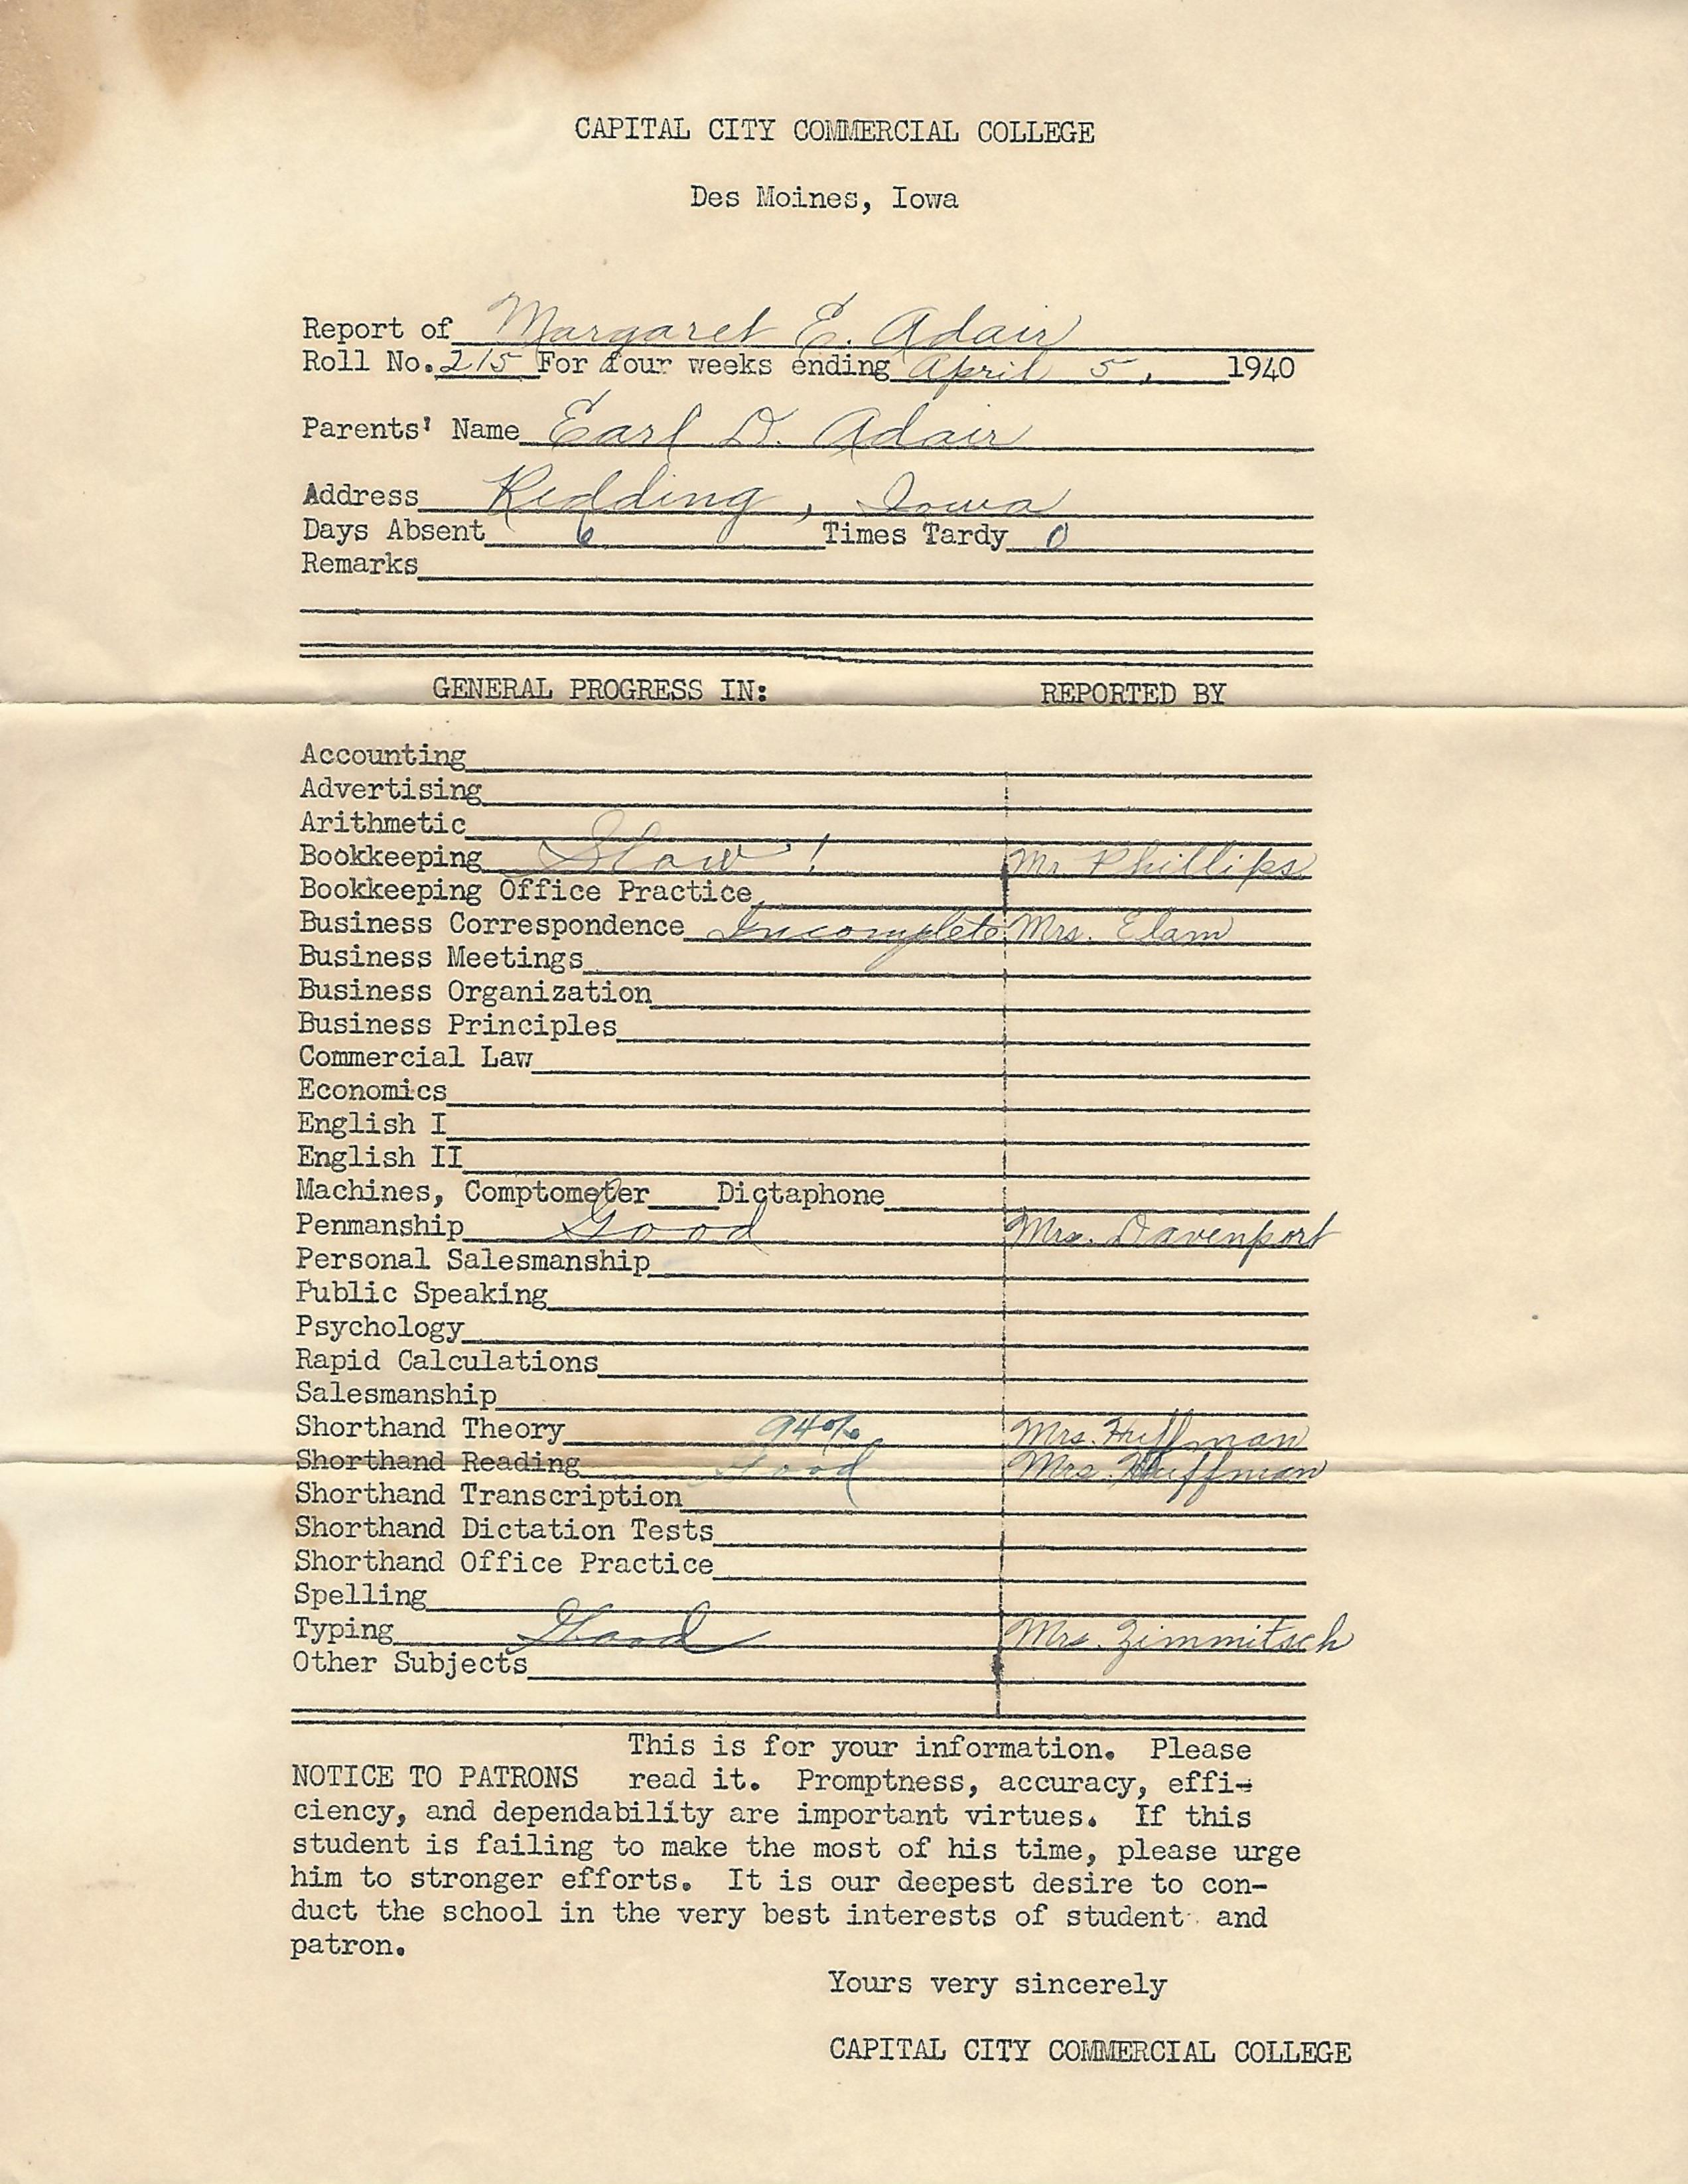 CAPITAL CITY COMMERCIAL COLLEGE
Des Moines, Iowa
Report of Margaret E. Adair
Roll No. 215 For four weeks ending April 5, 1940
Parents' Name Earl D. Adair
Address Redding, Iowa
Days Absent 6 Times Tardy 0
Remarks
GENERAL PROGRESS IN: REPORTED BY
Accounting
Advertising
Arithmetic
Bookkeeping Slow! Mr Phillips
Bookkeeping Office Practice
Business Correspondence Incomplete Mrs. Elam
Business Meetings
Business Organization
Business Principles
Commercial Law
Economics
English I
English II
Machines, Comptometer Dictaphone
Penmanship Good Mrs. Davenport
Personal Salesmanship
Public Speaking
Psychology
Rapid Calculations
Salesmanship
Shorthand Theory 94% Mrs. Huffman
Shorthand Reading Good Mrs. Huffman
Shorthand Transcription
Shorthand Dictation Tests
Shorthand Office Practice
Spelling
Typing Good Mrs. Zimmitsch
Other Subjects
This is for your information. Please
NOTICE TO PATRONS read it. Promptness, accuracy, effi-
ciency, and dependability are important virtues. If this
student is failing to make the most of his time, please urge
him to stronger efforts. It is our deepest desire to con-
duct the school in the very best interests of student and
patron.
Yours very sincerely
CAPITAL CITY COMMERCIAL COLLEGE